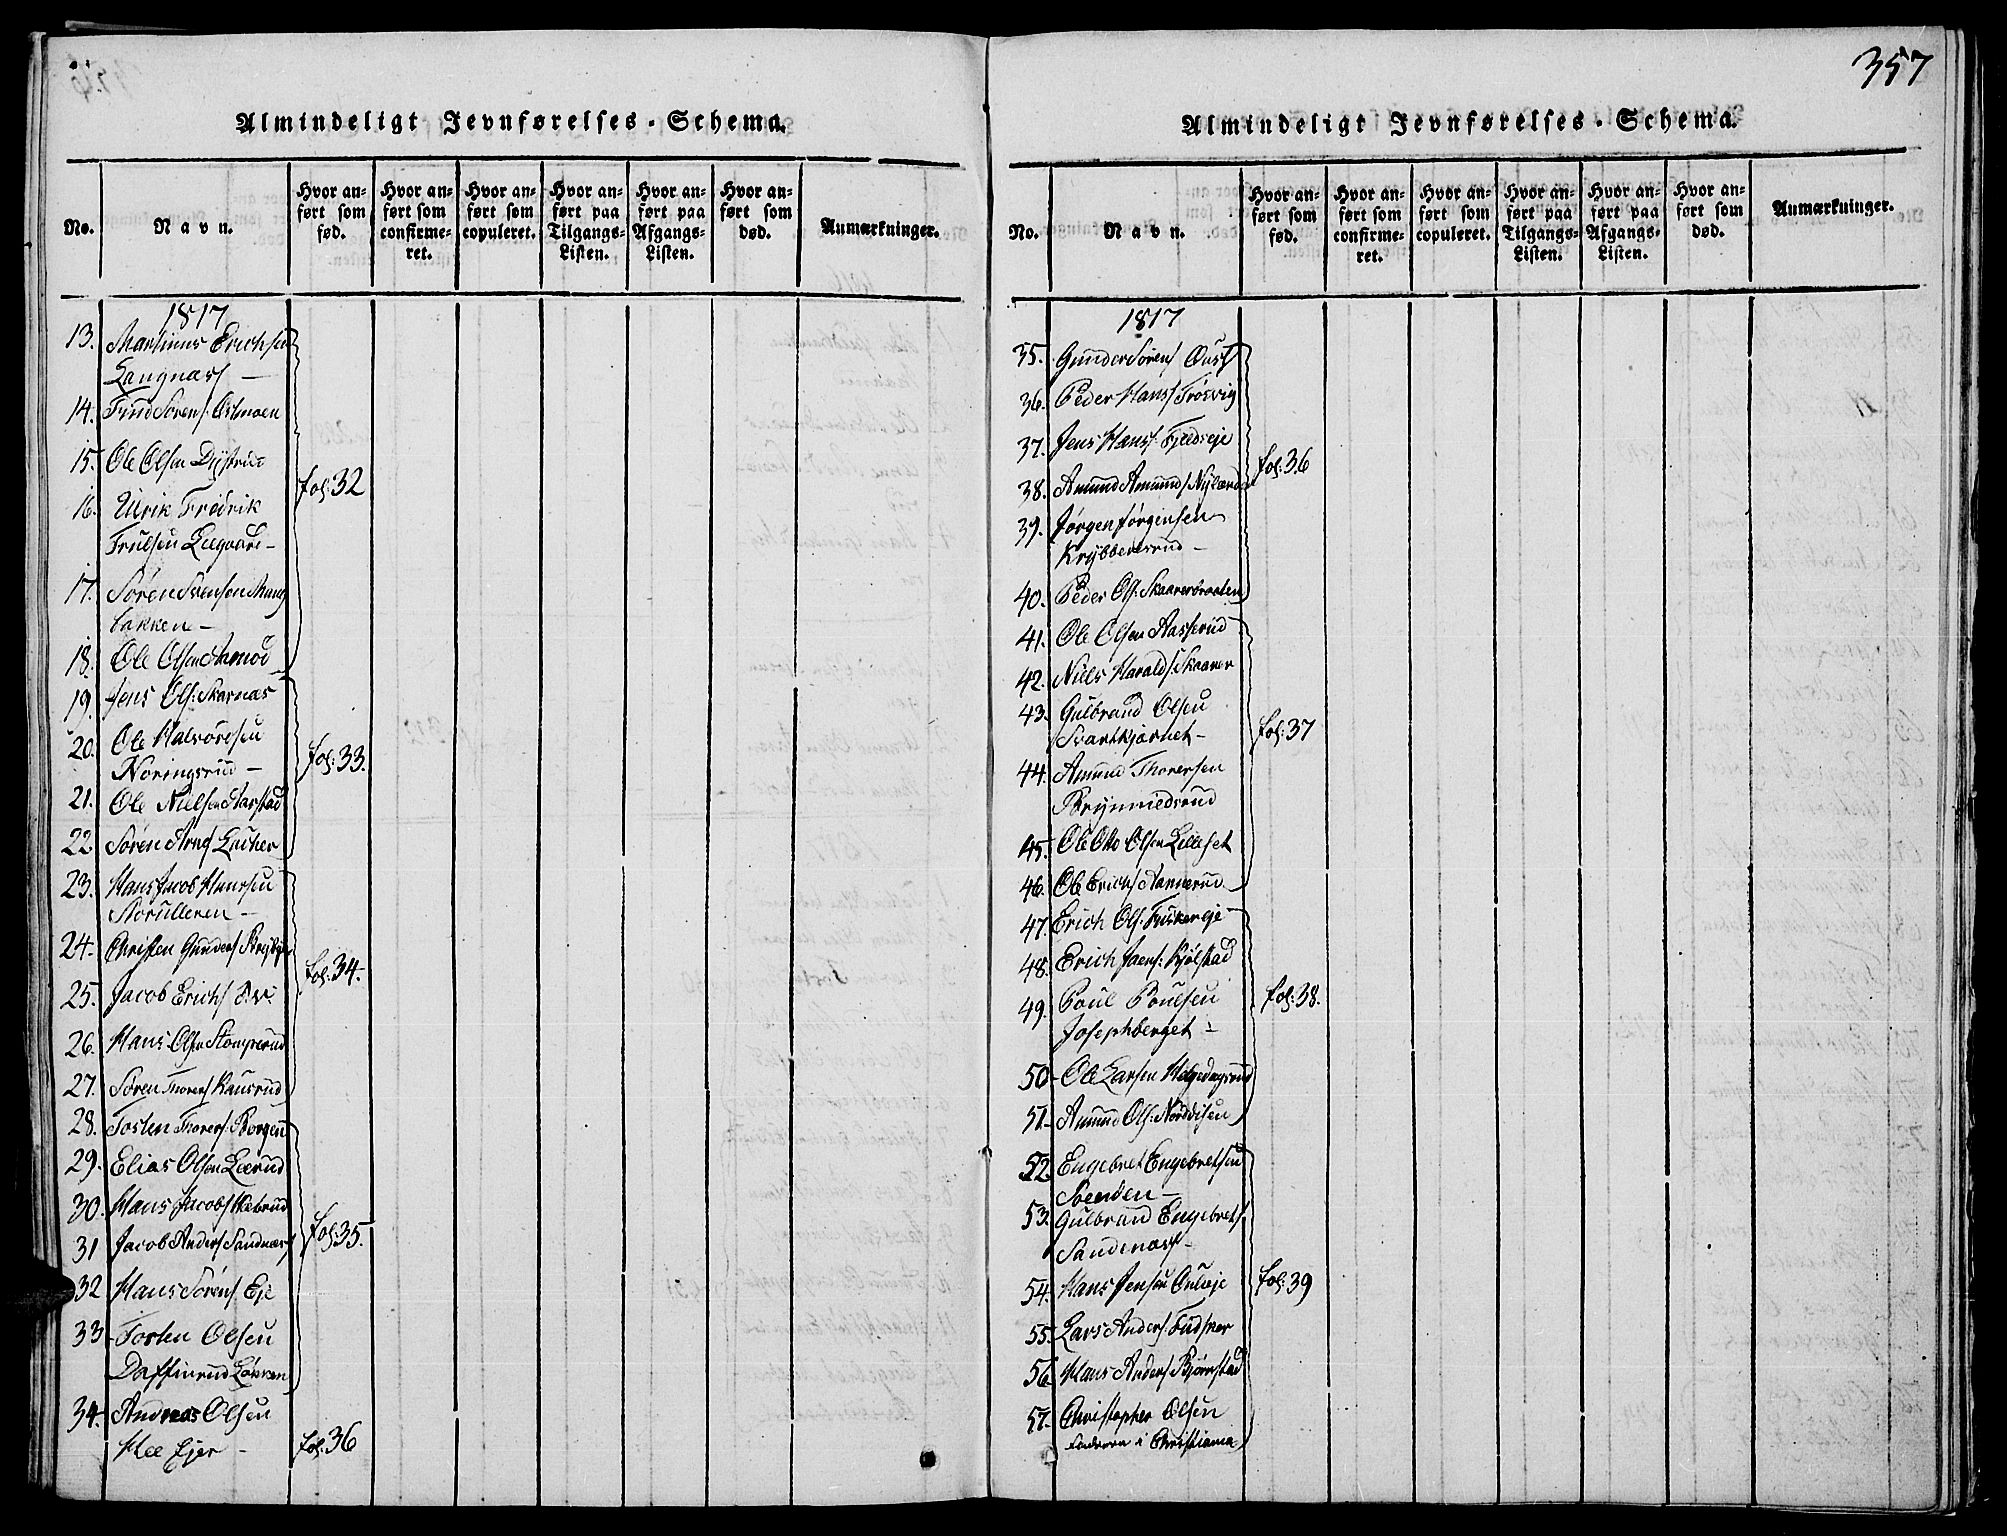 357
Almindeligt Jevnførelses-Schema.
No.
Navn.
Hvor anført som fød.
Hvor anført som confirmeret.
Hvor anført som copuleret.
Hvor anført paa Tilgangs-Listen.
Hvor anført paa Afgangs-Listen.
Hvor anført som død.
Anmærkninger.
1817
13. Martinus Erichsen
Langnæss —
14. Trued Sørens: Ostmoen
15. Ole Olsen Dystrud
16. Ulrik Fredrik
Trulsen Leegaard —
17. Søren Svensen
bakken —
18. Ole Olsen Aamod
fol: 32
19. Jens Ols: Skarnæs
20. Ole Halvorsen
Noringsrud —
21. Ole Nielsen Aarstad
22. Søren Arnes Lather
fol: 33.
23. Hans Jacob Hansen
Storulleren —
24. Christen Gunders
25. Jacob Erichs
26. Hans Olsen Stomperud
27. Søren Thorers Kausrud
fol: 34.
28. Tosten Thorers: Borgen
29. Elias Olsen Leerud
30. Hans Jacobs Hebrud
31 Jacob Anders Sandnæs
32 Hans Sørens Eje
33 Tosten Olsen
Daffinrud Løkken
fol: 35.
34. Andreas Olsen
Hee Ejer — fol: 36
Almindeligt Jevnførelses-Schema.
No.
Navn.
Hvor anført som fød.
Hvor anført som confirmeret.
Hvor anført som copuleret.
Hvor anført paa Tilgangs-Listen.
Hvor anført paa Afgangs-Listen.
Hvor anført som død.
Anmærkninger.
1817
35. Gunder Sørens Ous
36. Peder Hans Trosvig
37. Jens Hans: Fjeldseje
38. Amund Amunds
39. Jørgen Jørgensen
Krybbelsrud —
40. Peder Ols: Skaarerbraaten
fol: 36
41. Ole Olsen Aasserud
42. Niels Haralds: Skaarer
43. Gulbrand Olsen
Svartkjærnet —
44. Amund Thorersen
Brynmedsrud
45. Ole Otto Olsen Lilleset
46. Ole Erichs Aannerud
fol: 37
47. Erich Ols: Fuskereje
48. Erich Jaens: Kjølstad
49. Poul Poulsen
Josephberget —
50 Ole Larsen
51. Amund Ols: Norddisen
fol: 38.
52 Engebret Engebretsen
Sveuden —
53. Gulbrand Engebrets
Sandnæss
54. Hans Jensen Ouleje
55. Lars Anders: Fudsker
56 Hans Anders Bjørnstad
57. Christopher Olsen
i Christiania
fol: 39